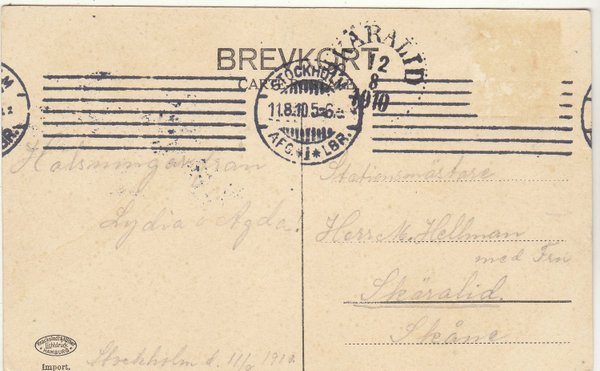 BREVKORT
SKÄRALID
12
8
1910
STOCKHOLM
11.8.10 5-6
AFG. ✶ 1 ✶ LBR.
LBR.
Hälsningar från
Lydia o Agda!
Stationsmästare
Herr M. Hellman
med Fru
Skäralid.
Skåne
Stockholm d. 11/8 1910.
HAMBURG
Import.